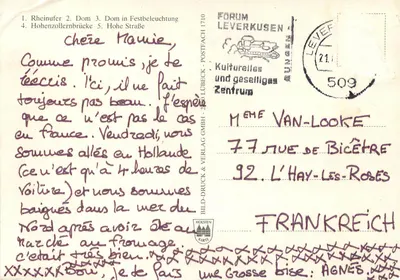 1. Rheinufer 2. Dom 3. Dom in Festbeleuchtung
4. Hohenzollernbrücke 5. Hohe Straße
chère Mamie,
Comme promis, je te
réécris. Ici, il ne fait
toujours pas beau. J'espère
que ce n'est pas le cas
en France. Vendredi, nous
sommes allés en Hollande
(ce n'est qu'à 4 heures de
Voiture) et nous sommes
baignés dans la mer du
Nord après avoir été au
Marché au fromage.
c'était très bien.
Bon, je te fais une grosse bise. AGNÈS
BILD-DRUCK & VERLAG GMBH LÜBECK · POSTFACH 1710
FORUM
LEVERKUSEN
Kulturelles
und geselliges
Zentrum
LEVER
21.
509
Mème VAN-LOOKE
77 RUE DE BICÊTRE
92. L'HAY-LES-ROSES
FRANKREICH